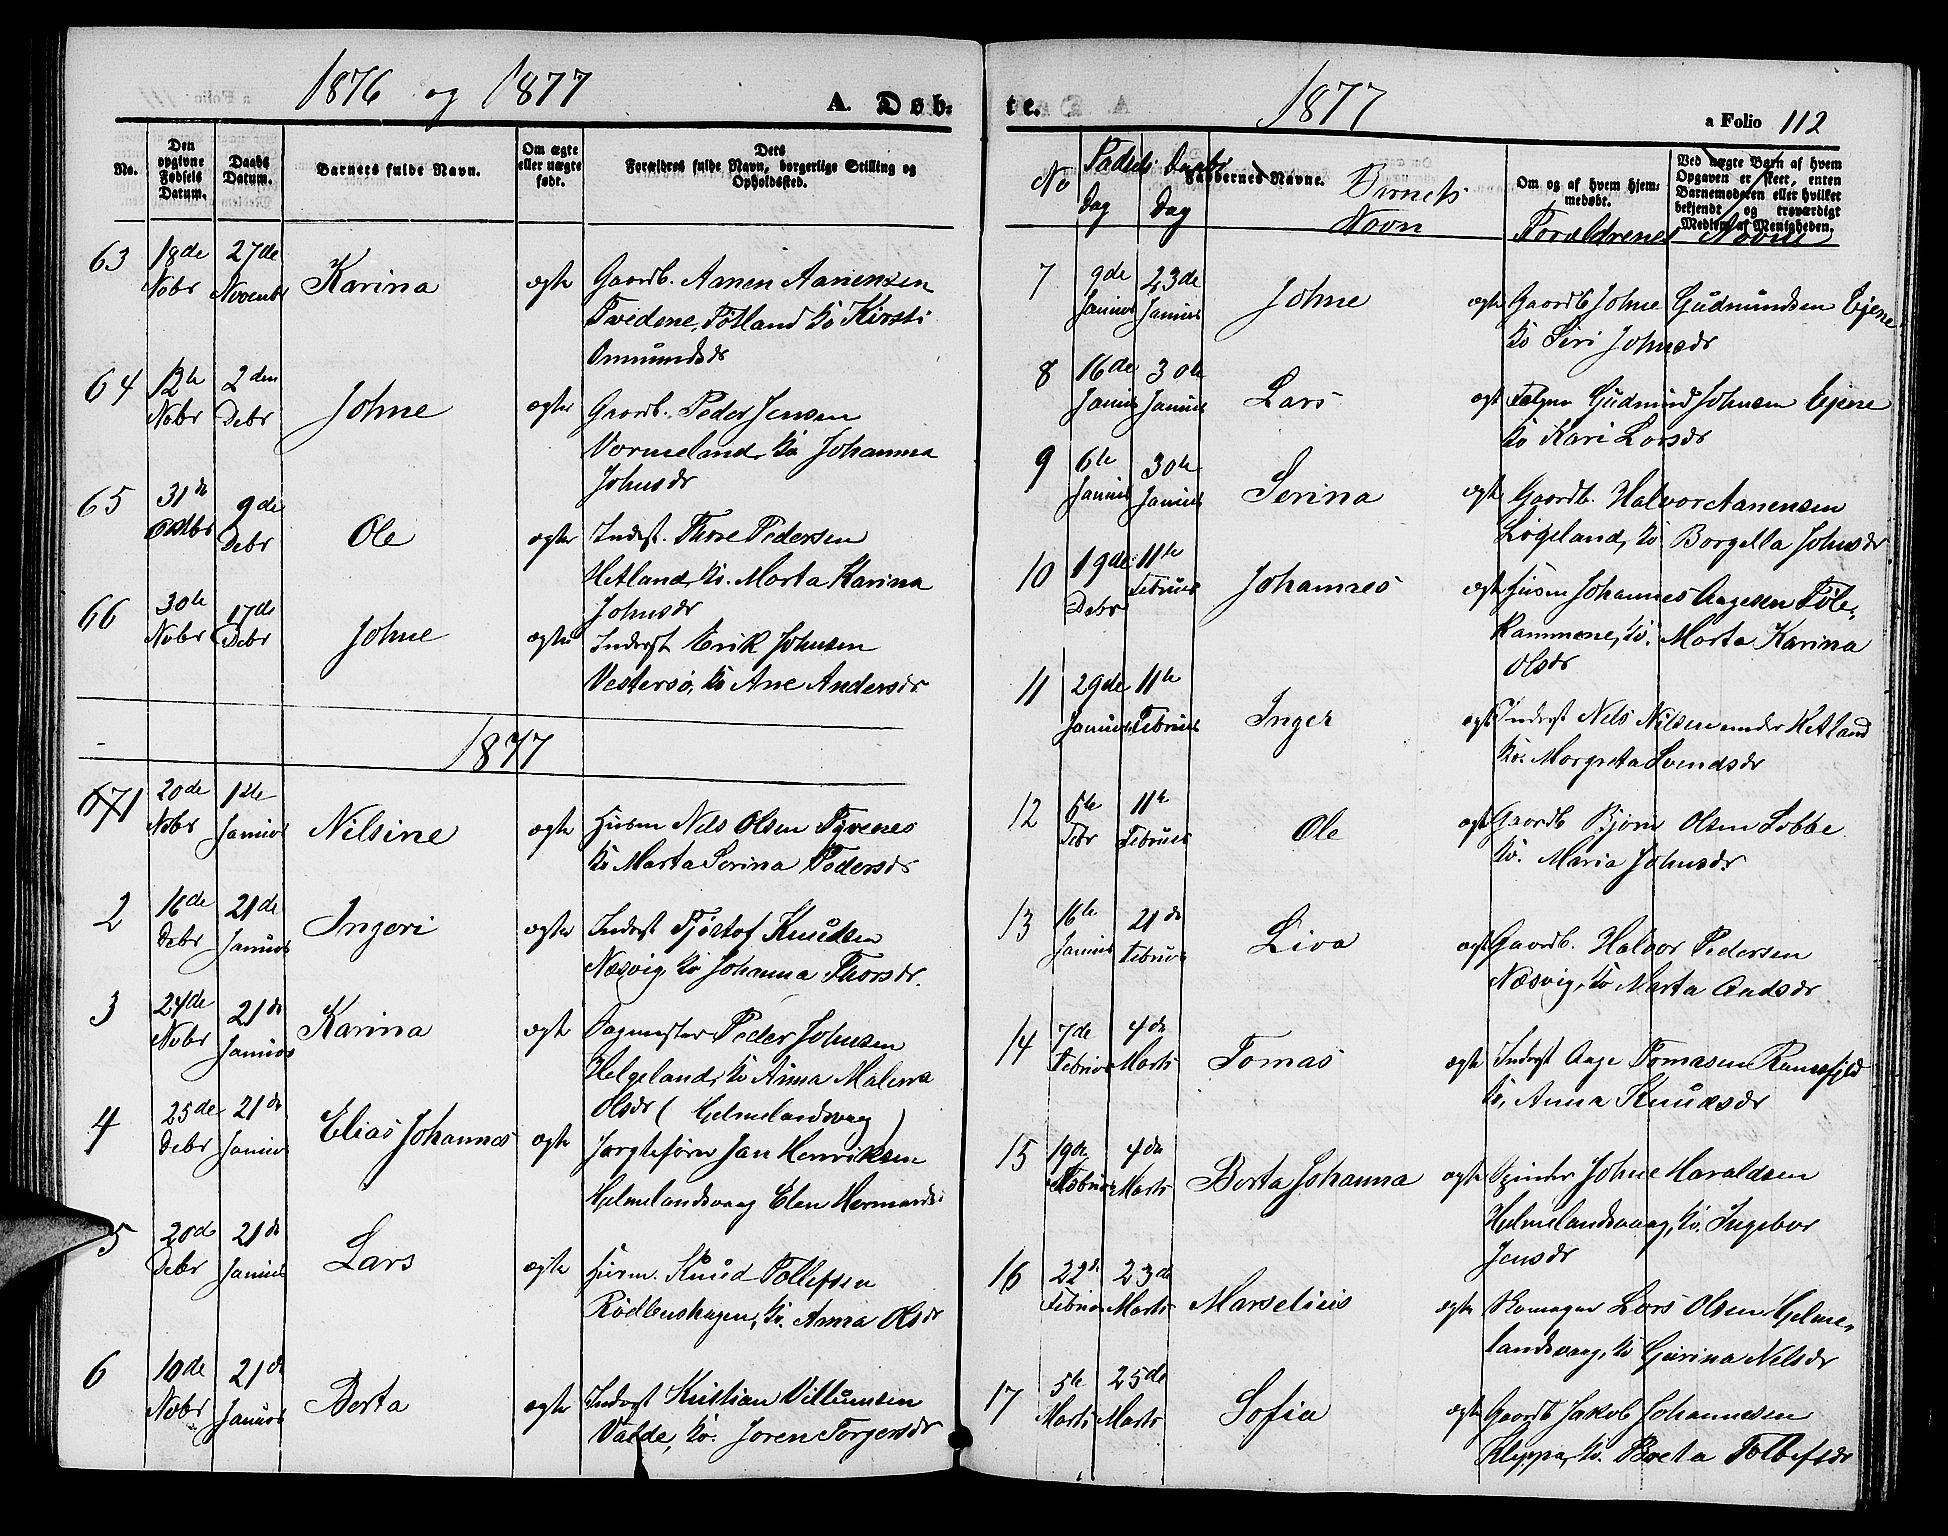 1876 og 1877
A. Døb-
No.
Den opgivne Fødsels Datum.
Daabs Datum.
Barnets fulde Navn.
Om ægte eller uægte født.
Dets Forældres fulde Navn, borgerlige Stilling og Opholdssted.
63 18de Nobr 27de Novembr Karina ægte Gaardb. Aanen Aanensen
Tvedene, Føtland Ko Kirsti
Omundsdr
64 12te Nobr 2den Debr Johne ægte Gaardb. Peder Jensen
Vormeland, Ko Johanna
Johnsdr
65 31te Octbr 9de Debr Ole ægte Inderst. Thore Pedersen
Hetland, Ko. Marta Karina
Johnsdr
66 30te Nobr 17de Debr Johne ægte Inderst Erik Johnsen
Vestersø, Ko Ane Andersdr
1877
671 20de Nobr 1ste Januar Nilsine ægte Husm Nels Olsen Tyvenes
Ko Marta Serina Pedersdr
2 16de Debr 21de Januar Ingeri ægte Inderst Tjøstof Knudsen
Næsvig, Ko Johanna Thorsdr.
3 24de Nobr 21de Januar Karina ægte Peder Johnsen
Helgeland, Ko Anna Malena
Olsdr (Hjelmelandsvaag)
4 25de Debr 21de Januar Elias Johannes ægte Jan Henriksen
Hjelmelandsvaag Elen Hermands
5 20d Debr 21de Januar Lars ægte Husm. Knud Tollefsen
Ko. Anna Olsdr
6 19de Nobr 21de Januar Berta ægte Inderst Kristian Villumsen
Valde, Ko. Joren Torgersdr
te.
1877
a Folio 112
No
Fødsels Dag
Daabs Dag
Faddernes Navne.
Barnets Navn
Om og af hvem hjemmedøbt.
Ved uægte Barn af hvem Opgaven er skeet, enten Barnemoderen eller hvilket bekjendt og troværdigt Medlem af Menigheden.
Forældrenes Navne
7 9de Januar 23de Januar Johne ægte Gaardb Johne Gudmundsen Ejene
Ko Siri Johnsdr
8 16de Januar 30te Januar Lars ægte Gudmund Johnsen Ejene
Ko Kari Larsdr
9 6te Januar 30te Januar Serina ægte Gaardb. Halvor Aanensen
Løgeland, Ko. Borgella Johnsdr
10 19de Debr 11te Februar Johannes ægte Husm Johannes Aagesen Føle-
kammene, Ko. Marta Karina
Olsdr
11 29de Januar 11te Februar Inger ægte Inderst Nels Nilsen under Hetland
Ko. Margreta Svendsdr
12 5te Febr 11te Februar Ole ægte Gaardb Bjørn Olsen Løbbe
Ko. Maria Johnsdr
13 16te Januar 21de Februar Liva ægte Gaardb. Halvor Pedersen
Næsvig, Ko Marta Aadsdr
14 7de Februar 4de Marts Tomas ægte Inderst Aage Tomasen Ramsfjeld
Ko, Anna Knudsdr
15 19de Februar 4de Marts Berta Johanna ægte Johne Haraldsen
Hjelmelandsvaag, Ko. Ingebor
Jensdr
16 22de Februar 23de Marts Marselius ægte Skomager Lars Olsen Hjelme-
landsvaag, Ko Gurina Nelsdr
17 5te Marts 25de Marts Sofia ægte Gaardb Jakob Johannesen
Kleppa, Ko. Breta Tollefsdr